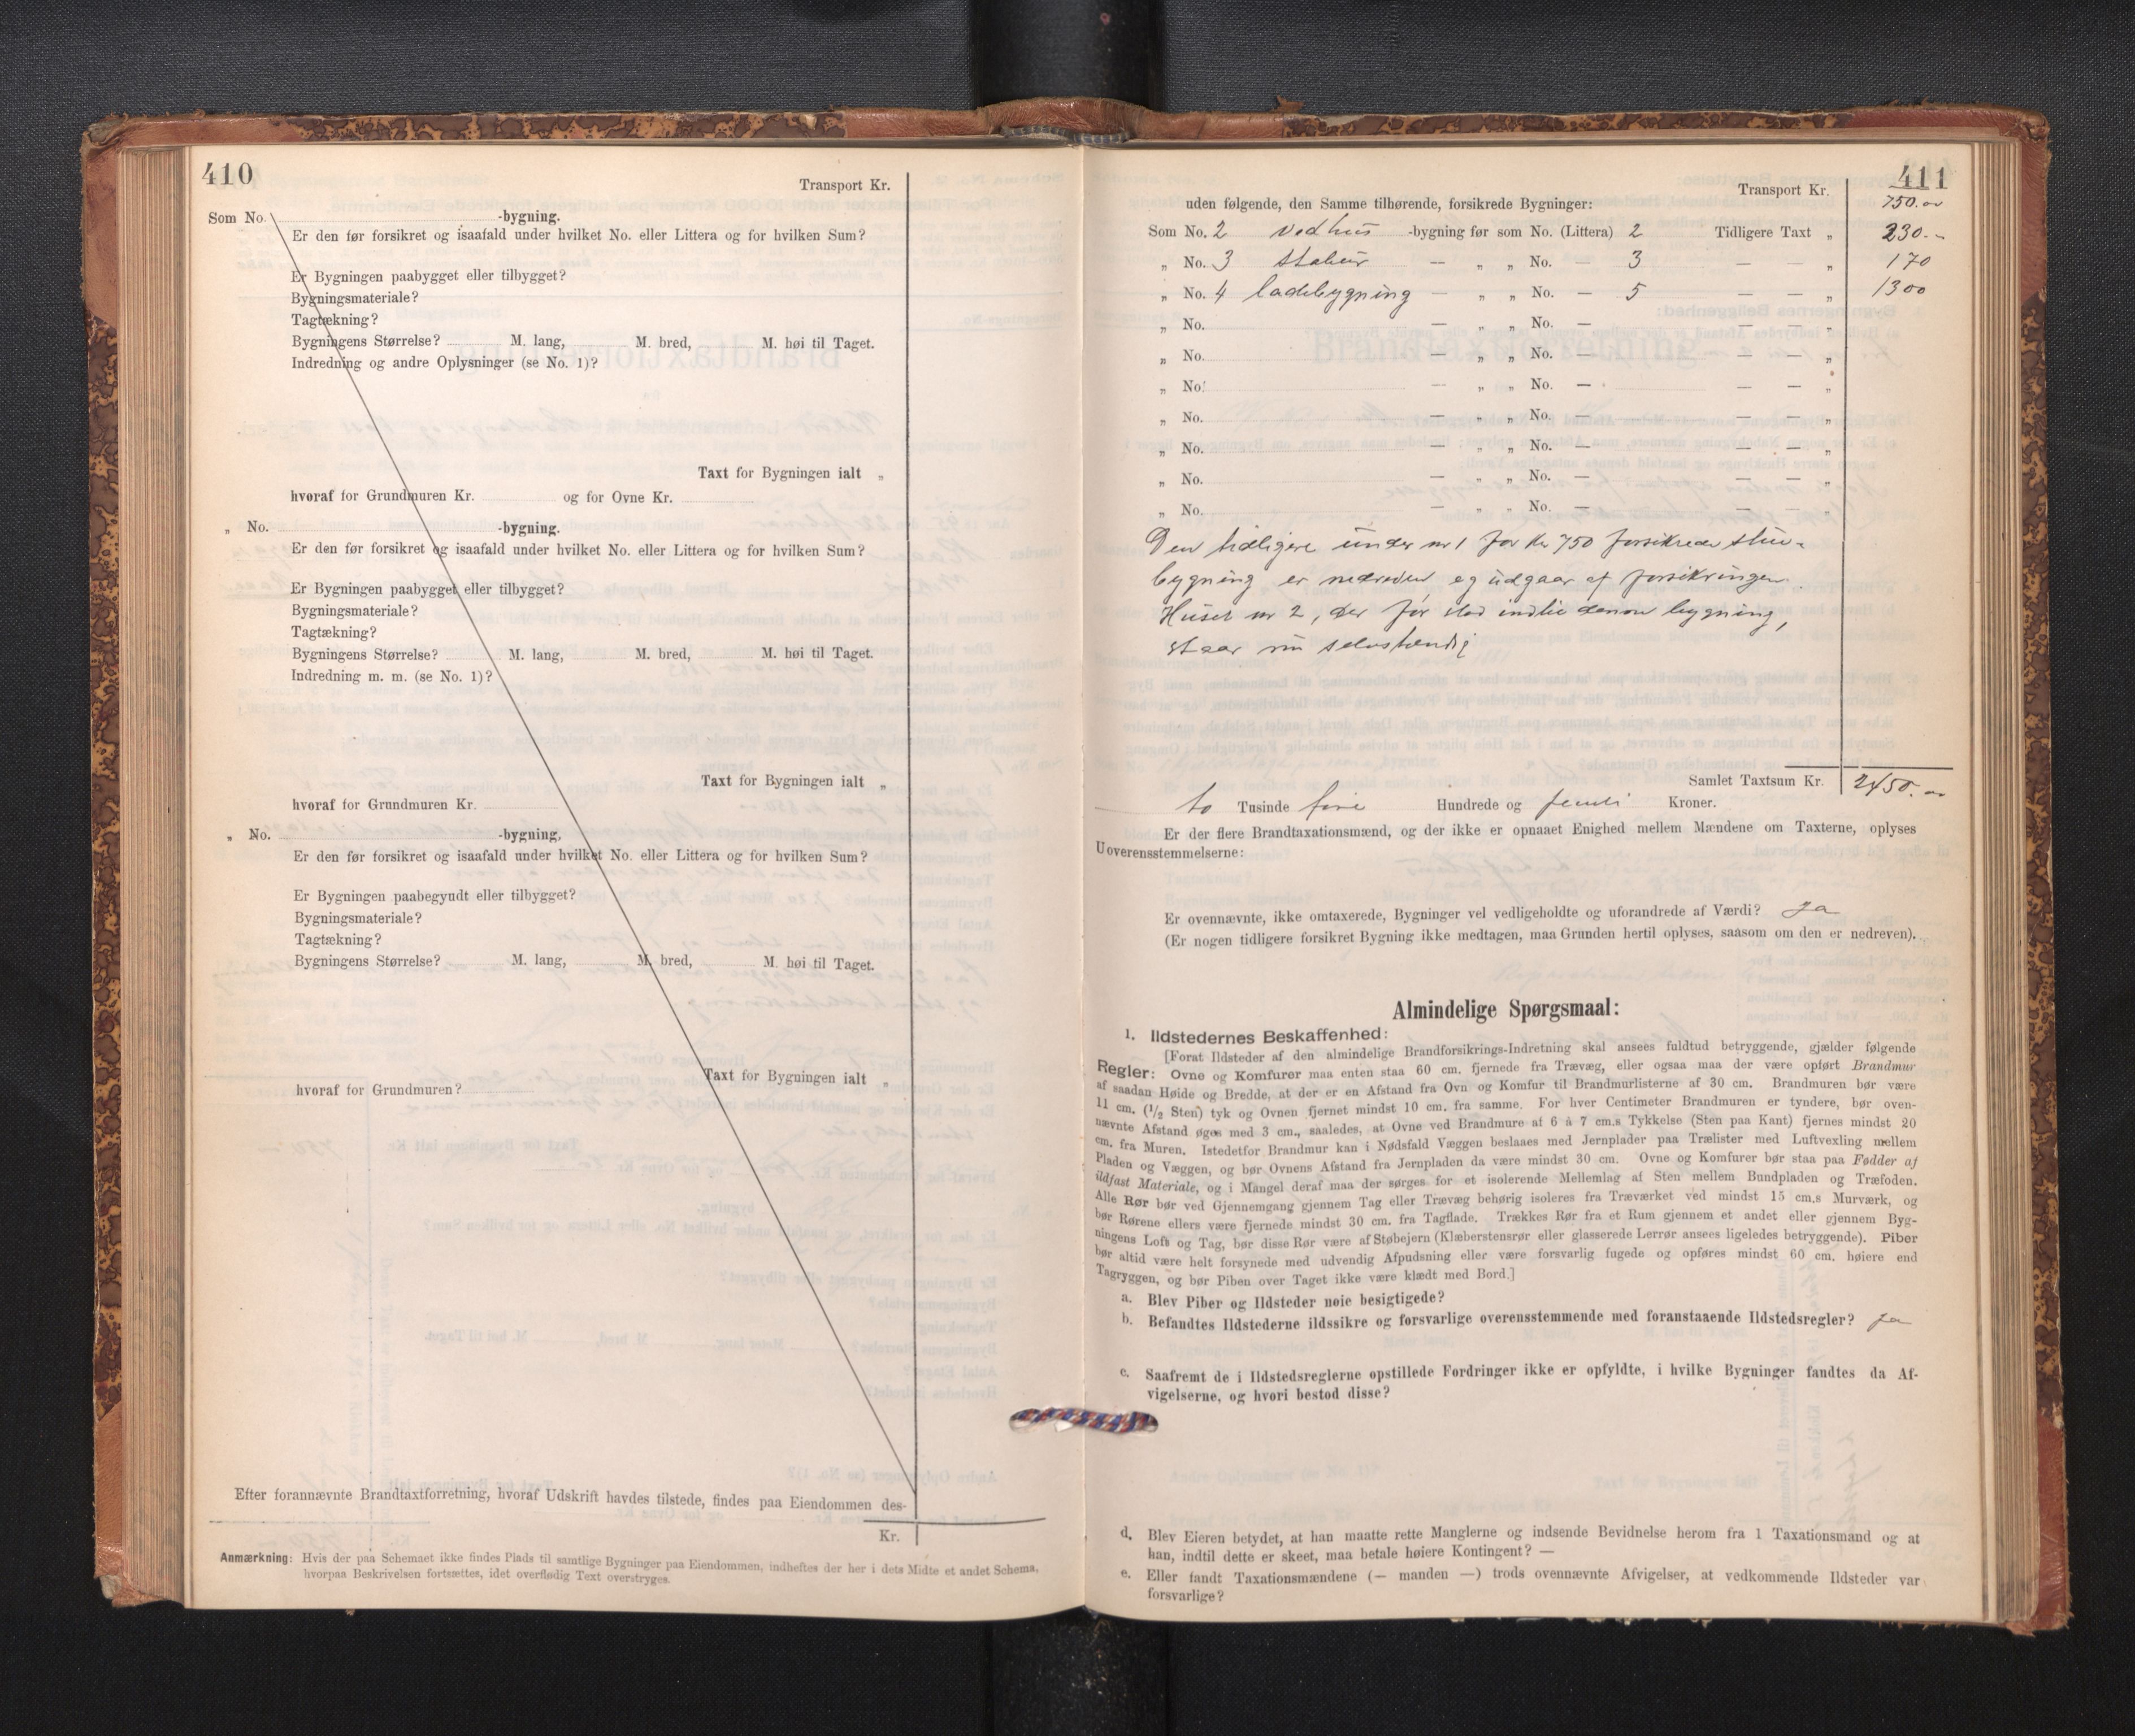 410
Transport Kr.
Som No. -bygning.
Er den før forsikret og isaafald under hvilket No. eller Littera og for hvilken Sum?
Er Bygningen paabygget eller tilbygget?
Bygningsmateriale?
Tagtækning?
Bygningens Størrelse? M. lang, M. bred, M. høi til Taget.
Indredning og andre Oplysninger (se No. 1)?
Taxt for Bygningen ialt „
hvoraf for Grundmuren Kr. og for Ovne Kr.
„ No. -bygning.
Er den før forsikret og isaafald under hvilket No. eller Littera og for hvilken Sum?
Er Bygningen paabygget eller tilbygget?
Bygningsmateriale?
Tagtækning?
Bygningens Størrelse? M. lang, M. bred, M. høi til Taget.
Indredning m. m. (se No. 1)?
Taxt for Bygningen ialt „
hvoraf for Grundmuren Kr.
„ No. -bygning,
Er den før forsikret og isaafald under hvilket No. eller Littera og for hvilken Sum?
Er Bygningen paabegyndt eller tilbygget?
Bygningsmateriale?
Tagtækning?
Bygningens Størrelse? M. lang, M. bred, M. høi til Taget.
Taxt for Bygningen ialt „
hvoraf for Grundmuren?
Efter forannævnte Brandtaxtforretning, hvoraf Udskrift havdes tilstede, findes paa Eiendommen des-
Kr.
Anmærkning: Hvis der paa Schemaet ikke findes Plads til samtlige Bygninger paa Eiendommen, indheftes der her i dets Midte et andet Schema,
hvorpaa Beskrivelsen fortsættes, idet overflødig Text overstryges.
411
Transport Kr.
uden følgende, den Samme tilhørende, forsikrede Bygninger: 750.00
Som No. 2 vedhus -bygning før som No. (Littera) 2 Tidligere Taxt „ 230.-
„ No. 3 stabur — „ „ No. — 3 — — „ 170
„ No. 4 ladebygning — „ „ No. — 5 — — „ 1300
„ No. — „ „ No. — — — „
„ No. — „ „ No. — — — „
„ No. — „ „ No. — — — „
„ No. — „ „ No. — — — „
„ No. — „ „ No. — — — „
„ No. — „ „ No. — — — „
„ No. — „ „ No. — — — „
Den tidligere under nr 1 for kr 750 forsikrede stue-
bygning er nedreven og udgaar af forsikringen.
Huset nr 2, der før stod indtil denne bygning,
staar nu selvstændig
Samlet Taxtsum Kr. 2450.00
to Tusinde fire Hundrede og femti Kroner.
Er der flere Brandtaxationsmænd, og der ikke er opnaaet Enighed mellem Mændene om Taxterne, oplyses
Uoverensstemmelserne:
Er ovennævnte, ikke omtaxerede, Bygninger vel vedligeholdte og uforandrede af Værdi? Ja
(Er nogen tidligere forsikret Bygning ikke medtagen, maa Grunden hertil oplyses, saasom om den er nedreven).
Almindelige Spørgsmaal:
1. Ildstedernes Beskaffenhed:
[Forat Ildsteder af den almindelige Brandforsikrings-Indretning skal ansees fuldtud betryggende, gjælder følgende
Regler: Ovne og Komfurer maa enten staa 60 cm. fjernede fra Trævæg, eller ogsaa maa der være opført Brandmur
af saadan Høide og Bredde, at der er en Afstand fra Ovn og Komfur til Brandmurlisterne af 30 cm. Brandmuren bør være
11 cm. (1/2 Sten) tyk og Ovnen fjernet mindst 10 cm. fra samme. For hver Centimeter Brandmuren er tyndere, bør oven-
nævnte Afstand øges med 3 cm., saaledes, at Ovne ved Brandmure af 6 à 7 cm.s Tykkelse (Sten paa Kant) fjernes mindst 20
cm. fra Muren. Istedetfor Brandmur kan i Nødsfald Væggen beslaaes med Jernplader paa Trælister med Luftvexling mellem
Pladen og Væggen, og bør Ovnens Afstand fra Jernpladen da være mindst 30 cm. Ovne og Komfurer bør staa paa Fødder af
ildfast Materiale, og i Mangel deraf maa der sørges for et isolerende Mellemlag af Sten mellem Bundpladen og Træfoden.
Alle Rør bør ved Gjennemgang gjennem Tag eller Trævæg behørig isoleres fra Træværket ved mindst 15 cm.s Murværk, og
bør Rørene ellers være fjernede mindst 30 cm. fra Tagflade. Trækkes Rør fra et Rum gjennem et andet eller gjennem Byg-
ningens Loft og Tag, bør disse Rør være af Støbejern (Klæberstensrør eller glasserede Lerrør ansees ligeledes betryggende). Piber
bør altid være helt forsynede med udvendig Afpudsning eller være forsvarlig fugede og opføres mindst 60 cm. høiere end
Tagryggen, og bør Piben over Taget ikke være klædt med Bord.]
a. Blev Piber og Ildsteder nøie besigtigede?
b. Befandtes Ildstederne ildssikre og forsvarlige overensstemmende med foranstaaende Ildstedsregler? Ja
c. Saafremt de i Ildstedsreglerne opstillede Fordringer ikke er opfyldte, i hvilke Bygninger fandtes da Af-
vigelserne, og hvori bestod disse?
d. Blev Eieren betydet, at han maatte rette Manglerne og indsende Bevidnelse herom fra 1 Taxationsmand og at
han, indtil dette er skeet, maa betale høiere Kontingent? —
e. Eller fandt Taxationsmændene (— manden —) trods ovennævnte Afvigelser, at vedkommende Ildsteder var
forsvarlige?